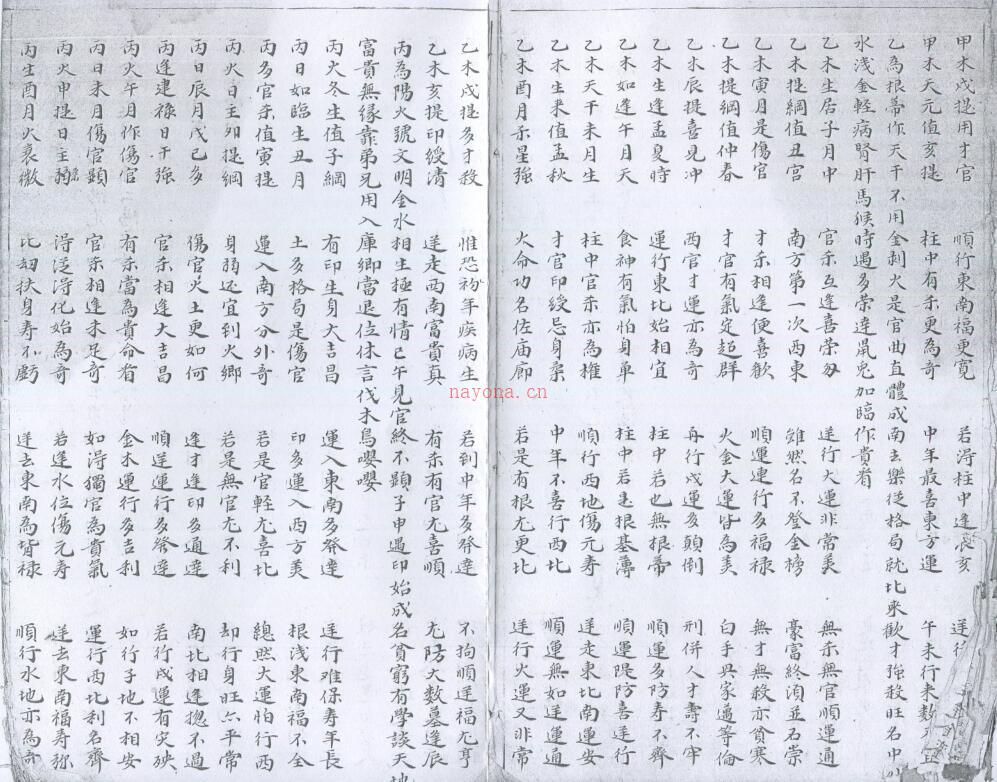 甲木戌提用才官　順行東南福更寬　若淂柱中逢辰亥　逆行
甲木天元值亥提　柱中有示更為奇　中年最喜東方運　午未行來數
乙為根蒂作天干不用金剥火是官曲直體成南去樂從格局就比來歡才強殺旺名中
水浅金輕病腎肝馬候時遇多榮達鼠兎加臨作貴看
乙木生居子月中　官示互逢喜榮　逆行火運非常美　無示無官順運通
乙木提綱值丑宫　南方第一次西東　雖然名不登金榜　豪富終湏並石崇
乙木寅月是傷官　才示相逢便喜歓　順運連行多福禄　無才無殺亦貧寒
乙木提綱值仲春　才官有氣定超群　火金大運皆為美　白手興家過等倫
乙木辰提喜見冲　酉官才運亦為奇　再行戌運多顛倒　刑併人才壽不牢
乙木生逢孟夏時　運行東北始相宜　柱中若也無根蒂　順運多防寿不齊
乙木如逢午月天　食神有氣怕身單　柱中若是根基薄　順運隄防喜逆行
乙木天干未月生　柱中官示亦為權　順行西地傷元寿　逆走東北南運安
乙木生來值孟秋　才官印綬忌身柔　中年不喜行西北　順運無如逆運通
乙木酉月示星強　火命功名佐庙廊　若是有根尤更比　逆行火運又非常
乙木戌提多才殺　惟恐初年疾病生　若到中年多發達　不拘順逆福尤亨
乙木亥提印綬清　逆走西南富貴真　有示有官尤喜順　尤防大数墓逢辰
丙為陽火號文明金水相生極有情巳午見官終不顕子申遇印始成名貧窮有學談天地
富貴無縁靠弟兄用入庫郷當退位休言伐木鳥嚶嚶
丙火冬生值子綱　有印生身大吉昌　運入東南多發達　逆行难保寿年長
丙日如臨生丑月　土多格局是傷官　印多運入西方美　根浅東南福不全
丙多官示值寅提　運入南方分外奇　若是官輕尤喜比　總然大運怕行西
丙火日主卯提綱　身弱还宜到火鄉　若是無官尤不利　却行身旺六平常
丙日辰月戊己多　傷官火土更如何　逢才逢印多通達　南比相逢捴不過
丙逢建禄日干強　官示相逢大吉昌　順逆運行多發達　若行戌運有灾殃
丙火午月作傷官　有示當為貴命看　金木運行多吉利　如行子地不相安
丙日未月傷官顕　官示相逢未足奇　如淂獨官為貴氣　運行西北利名齊
丙火申提日主弱　淂泛淂化始為奇　若逢水位傷元寿　逆去東南福寿称
丙生酉月火衰微　比刼扶身寿不虧　逆去東南為皆禄　順行水地亦為
nayona.cn